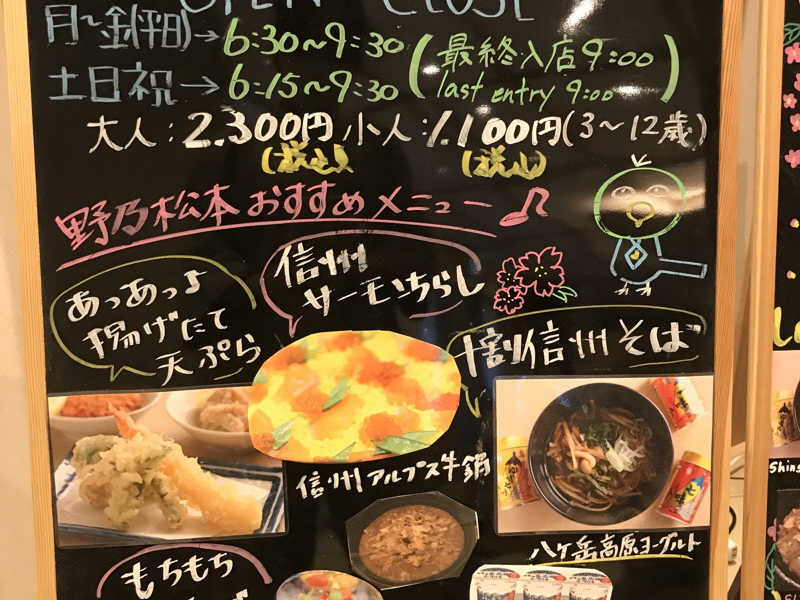 OPEN CLOSE
月～金(平日)→6:30～9:30
土日祝→6:15～9:30
(最終入店9:00
last entry 9:00)
大人:2.300円 小人:1.100円(3～12歳)
(税込) (税込)
野乃松本おすすめメニュー♪
あっあっよ
揚げたて
天ぷら
信州
サーモンちらし
十割信州そば
信州アルプス牛鍋
八ヶ岳高原ヨーグルト
もちもち
Shins